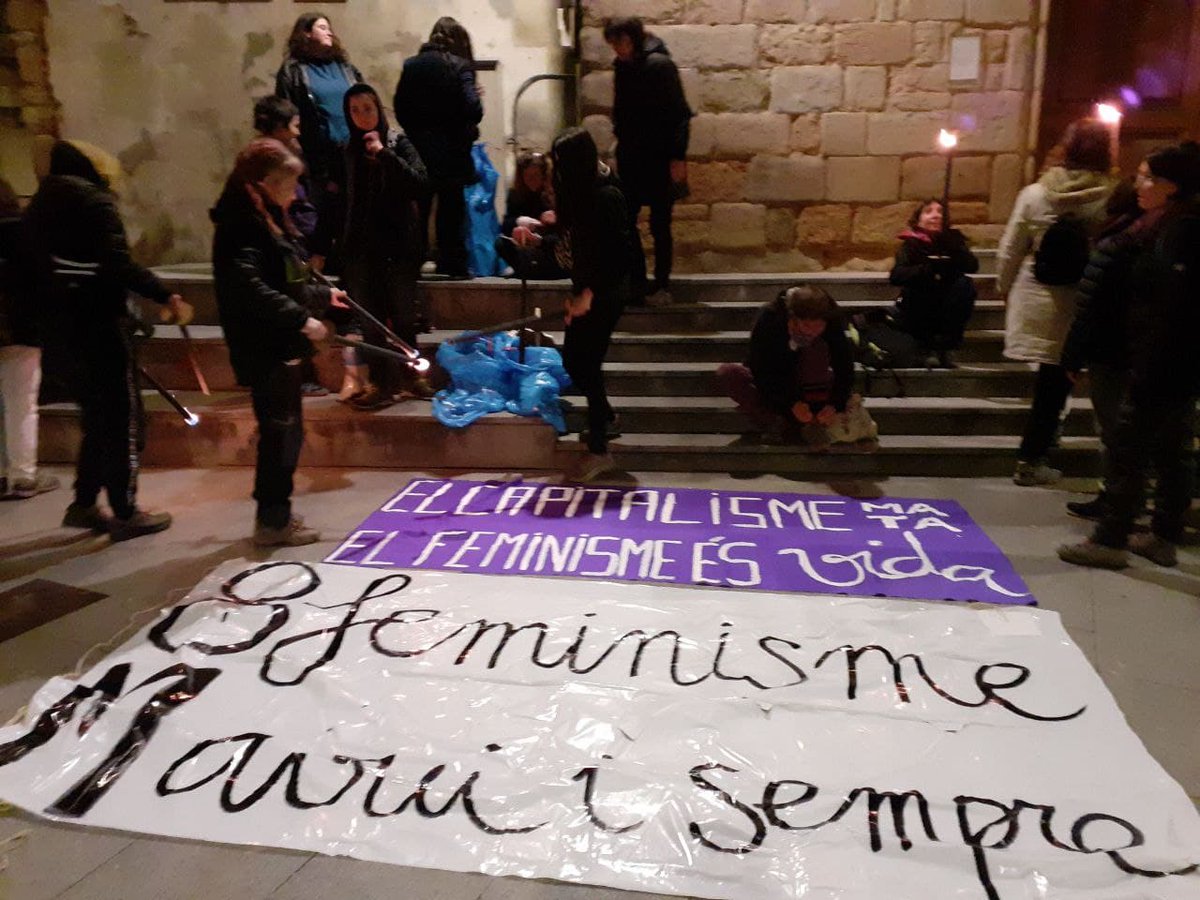 EL CAPITALISME MATA
EL FEMINISME ÉS vida
8 feminisme
M avui i sempre